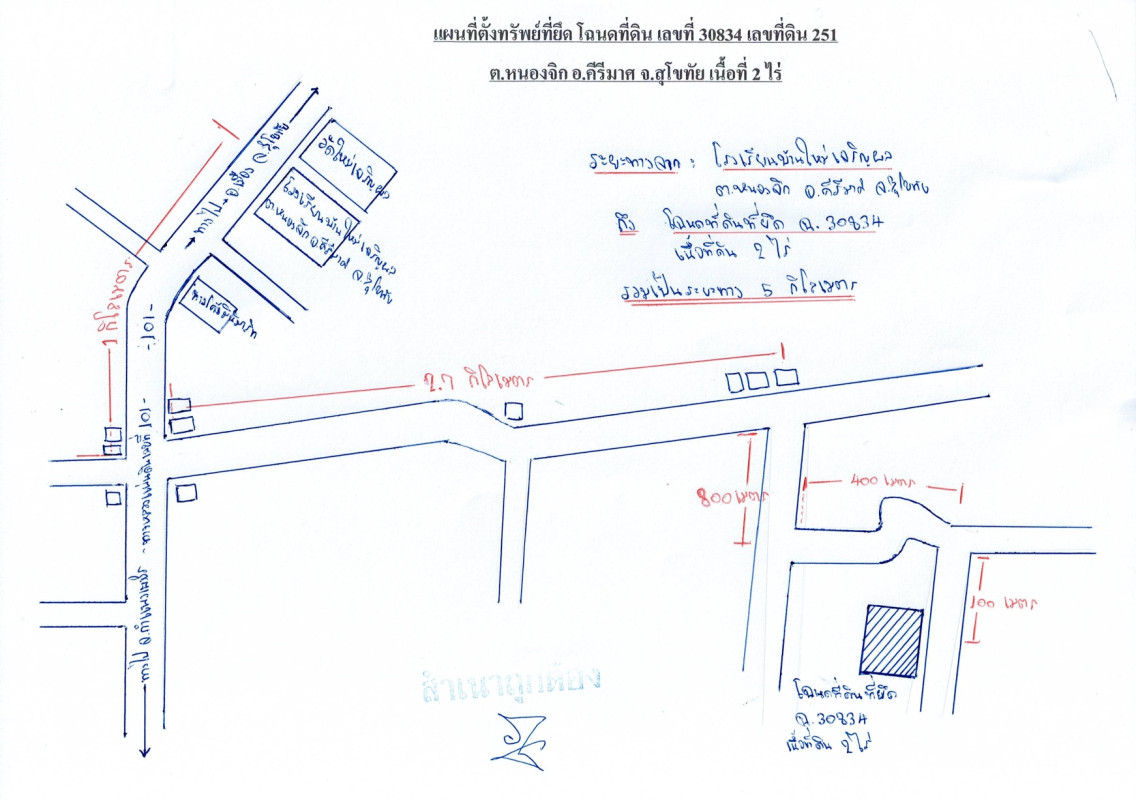 แผนที่ตั้งทรัพย์ที่ยึด โฉนดที่ดิน เลขที่ 30834 เลขที่ดิน 251
ต.หนองจิก อ.คีรีมาศ จ.สุโขทัย เนื้อที่ 2 ไร่
ระยะทางจาก : โรงเรียนบ้านใหม่เจริญผล
ต.หนองจิก อ.คีรีมาศ จ.สุโขทัย
ถึง โฉนดที่ดินที่ยึด ฉ. 30834
เนื้อที่ดิน 2 ไร่
รวมเป็นระยะทาง 5 กิโลเมตร
วัดใหม่เจริญผล
โรงเรียนบ้านใหม่เจริญผล
ต.หนองจิก อ.คีรีมาศ จ.สุโขทัย
ทางไป อ.เมือง จ.สุโขทัย
1 กิโลเมตร
-101-
2.7 กิโลเมตร
-101-
800 เมตร
400 เมตร
100 เมตร
ทางไป จ.กำแพงเพชร
โฉนดที่ดินที่ยึด
ฉ.30834
เนื้อที่ดิน 2 ไร่
สำเนาถูกต้อง